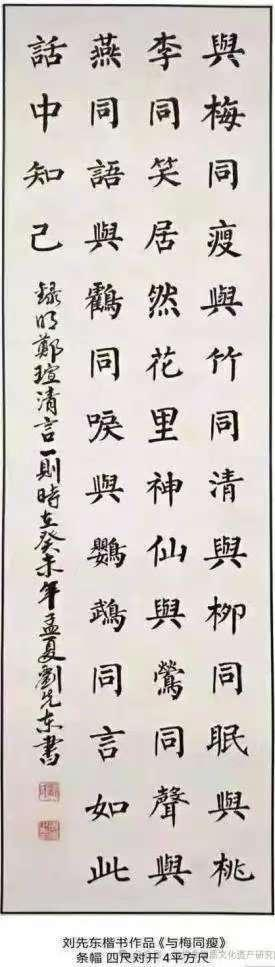 與梅同瘦與竹同清與柳同眠與桃
李同笑居然花里神仙與鶯同聲與
燕同語與鸛同唳與鸚鵡同言如此
話中知己
錄明鄭瑄清言一則時在癸未年孟夏劉先東書
刘先东楷书作品《与梅同瘦》
条幅 四尺对开 4平方尺